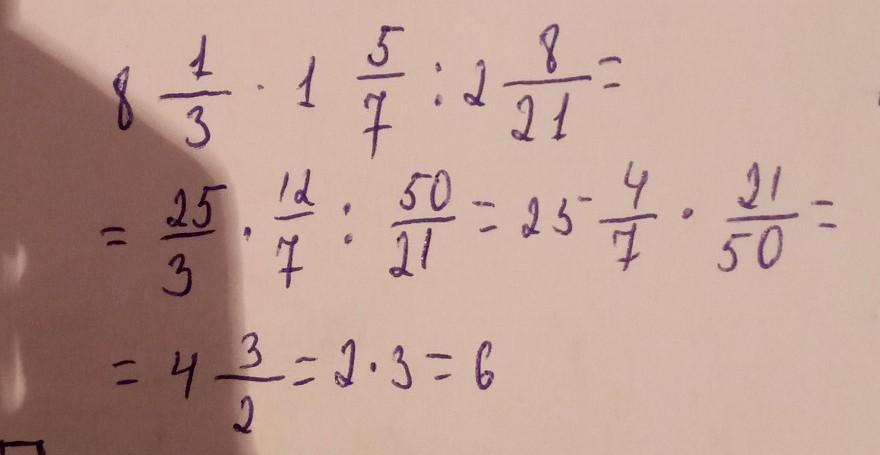 8 1/3 · 1 5/7 : 2 8/21 =
= 25/3 · 12/7 : 50/21 = 25 4/7 · 21/50 =
= 4 3/2 = 2 · 3 = 6